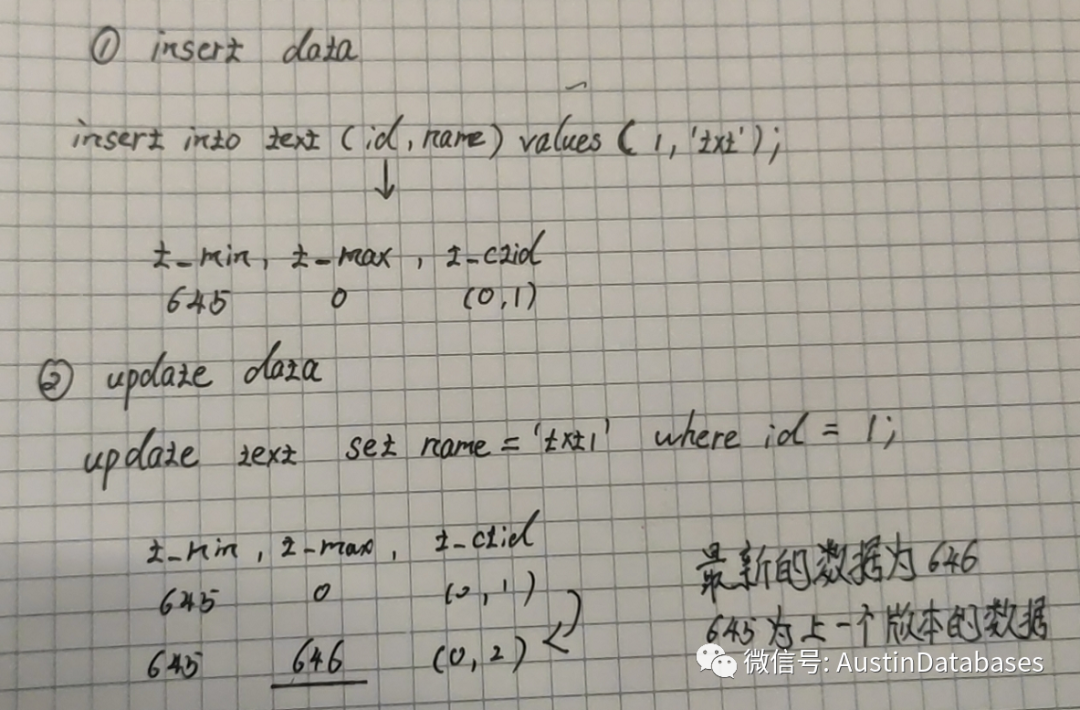 ① insert data
insert into text (id, name) values ( 1, 'txt');
↓
t_min, t_max, t_ctid
645 0 (0,1)
② update data
update text set name = 'txt1' where id = 1;
t_min, t_max, t_ctid
645 0 (0,1)
645 646 (0,2)
最新的数据为 646
645 为上一个版本的数据
微信号: AustinDatabases